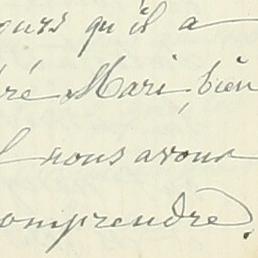 ours qu'il a
ré Mari, bien
l nous avons
omprendre.